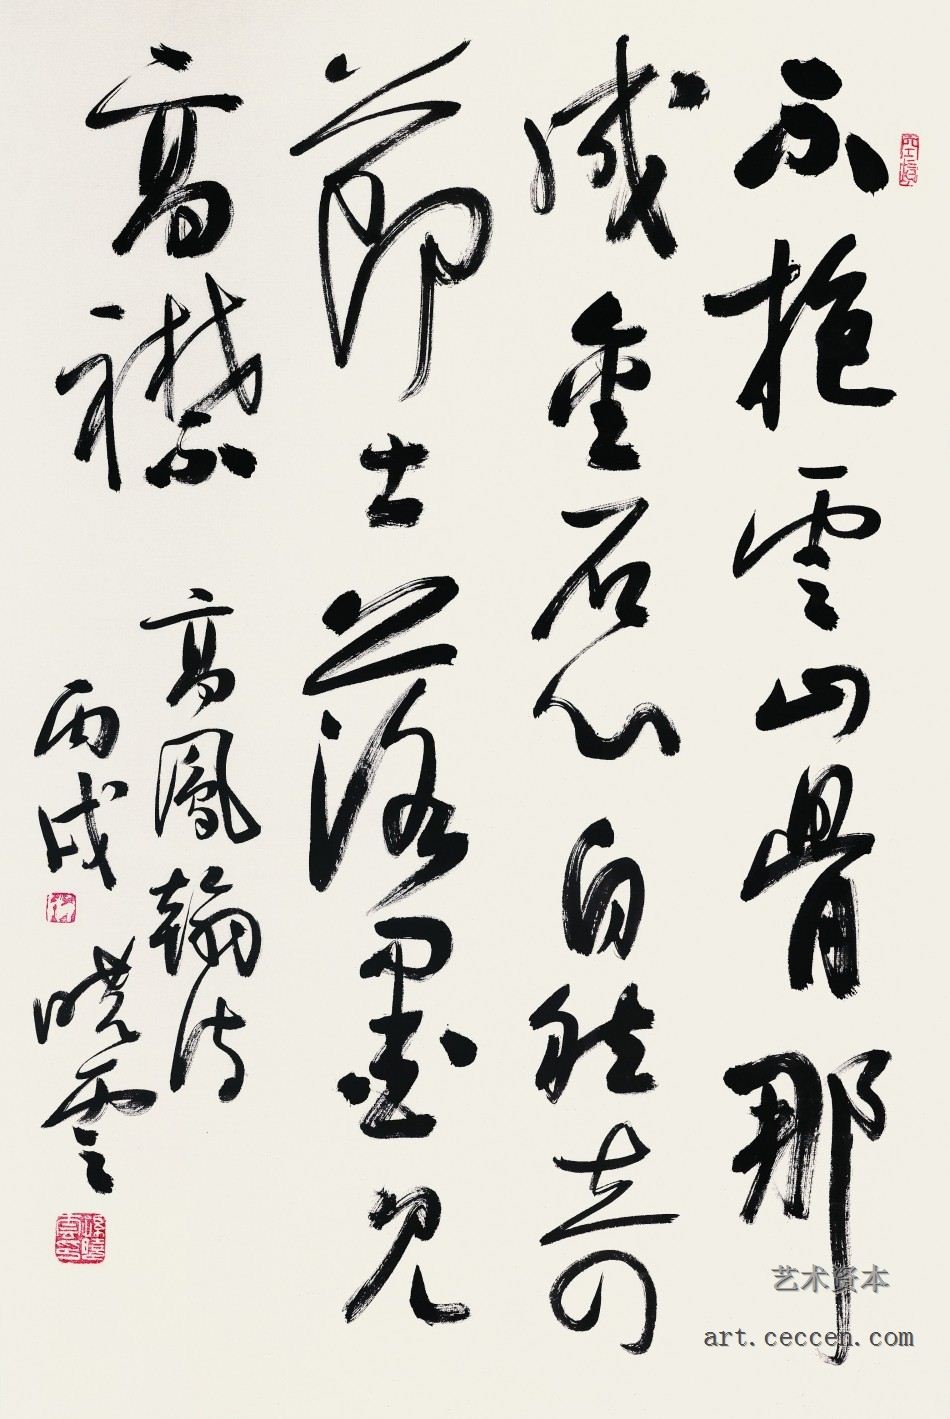 不抱雲山骨那
成金石心自然奇
節士落墨見
高襟
高鳳翰詩
丙戌
曉雲
艺术资本
art.ceccen.com